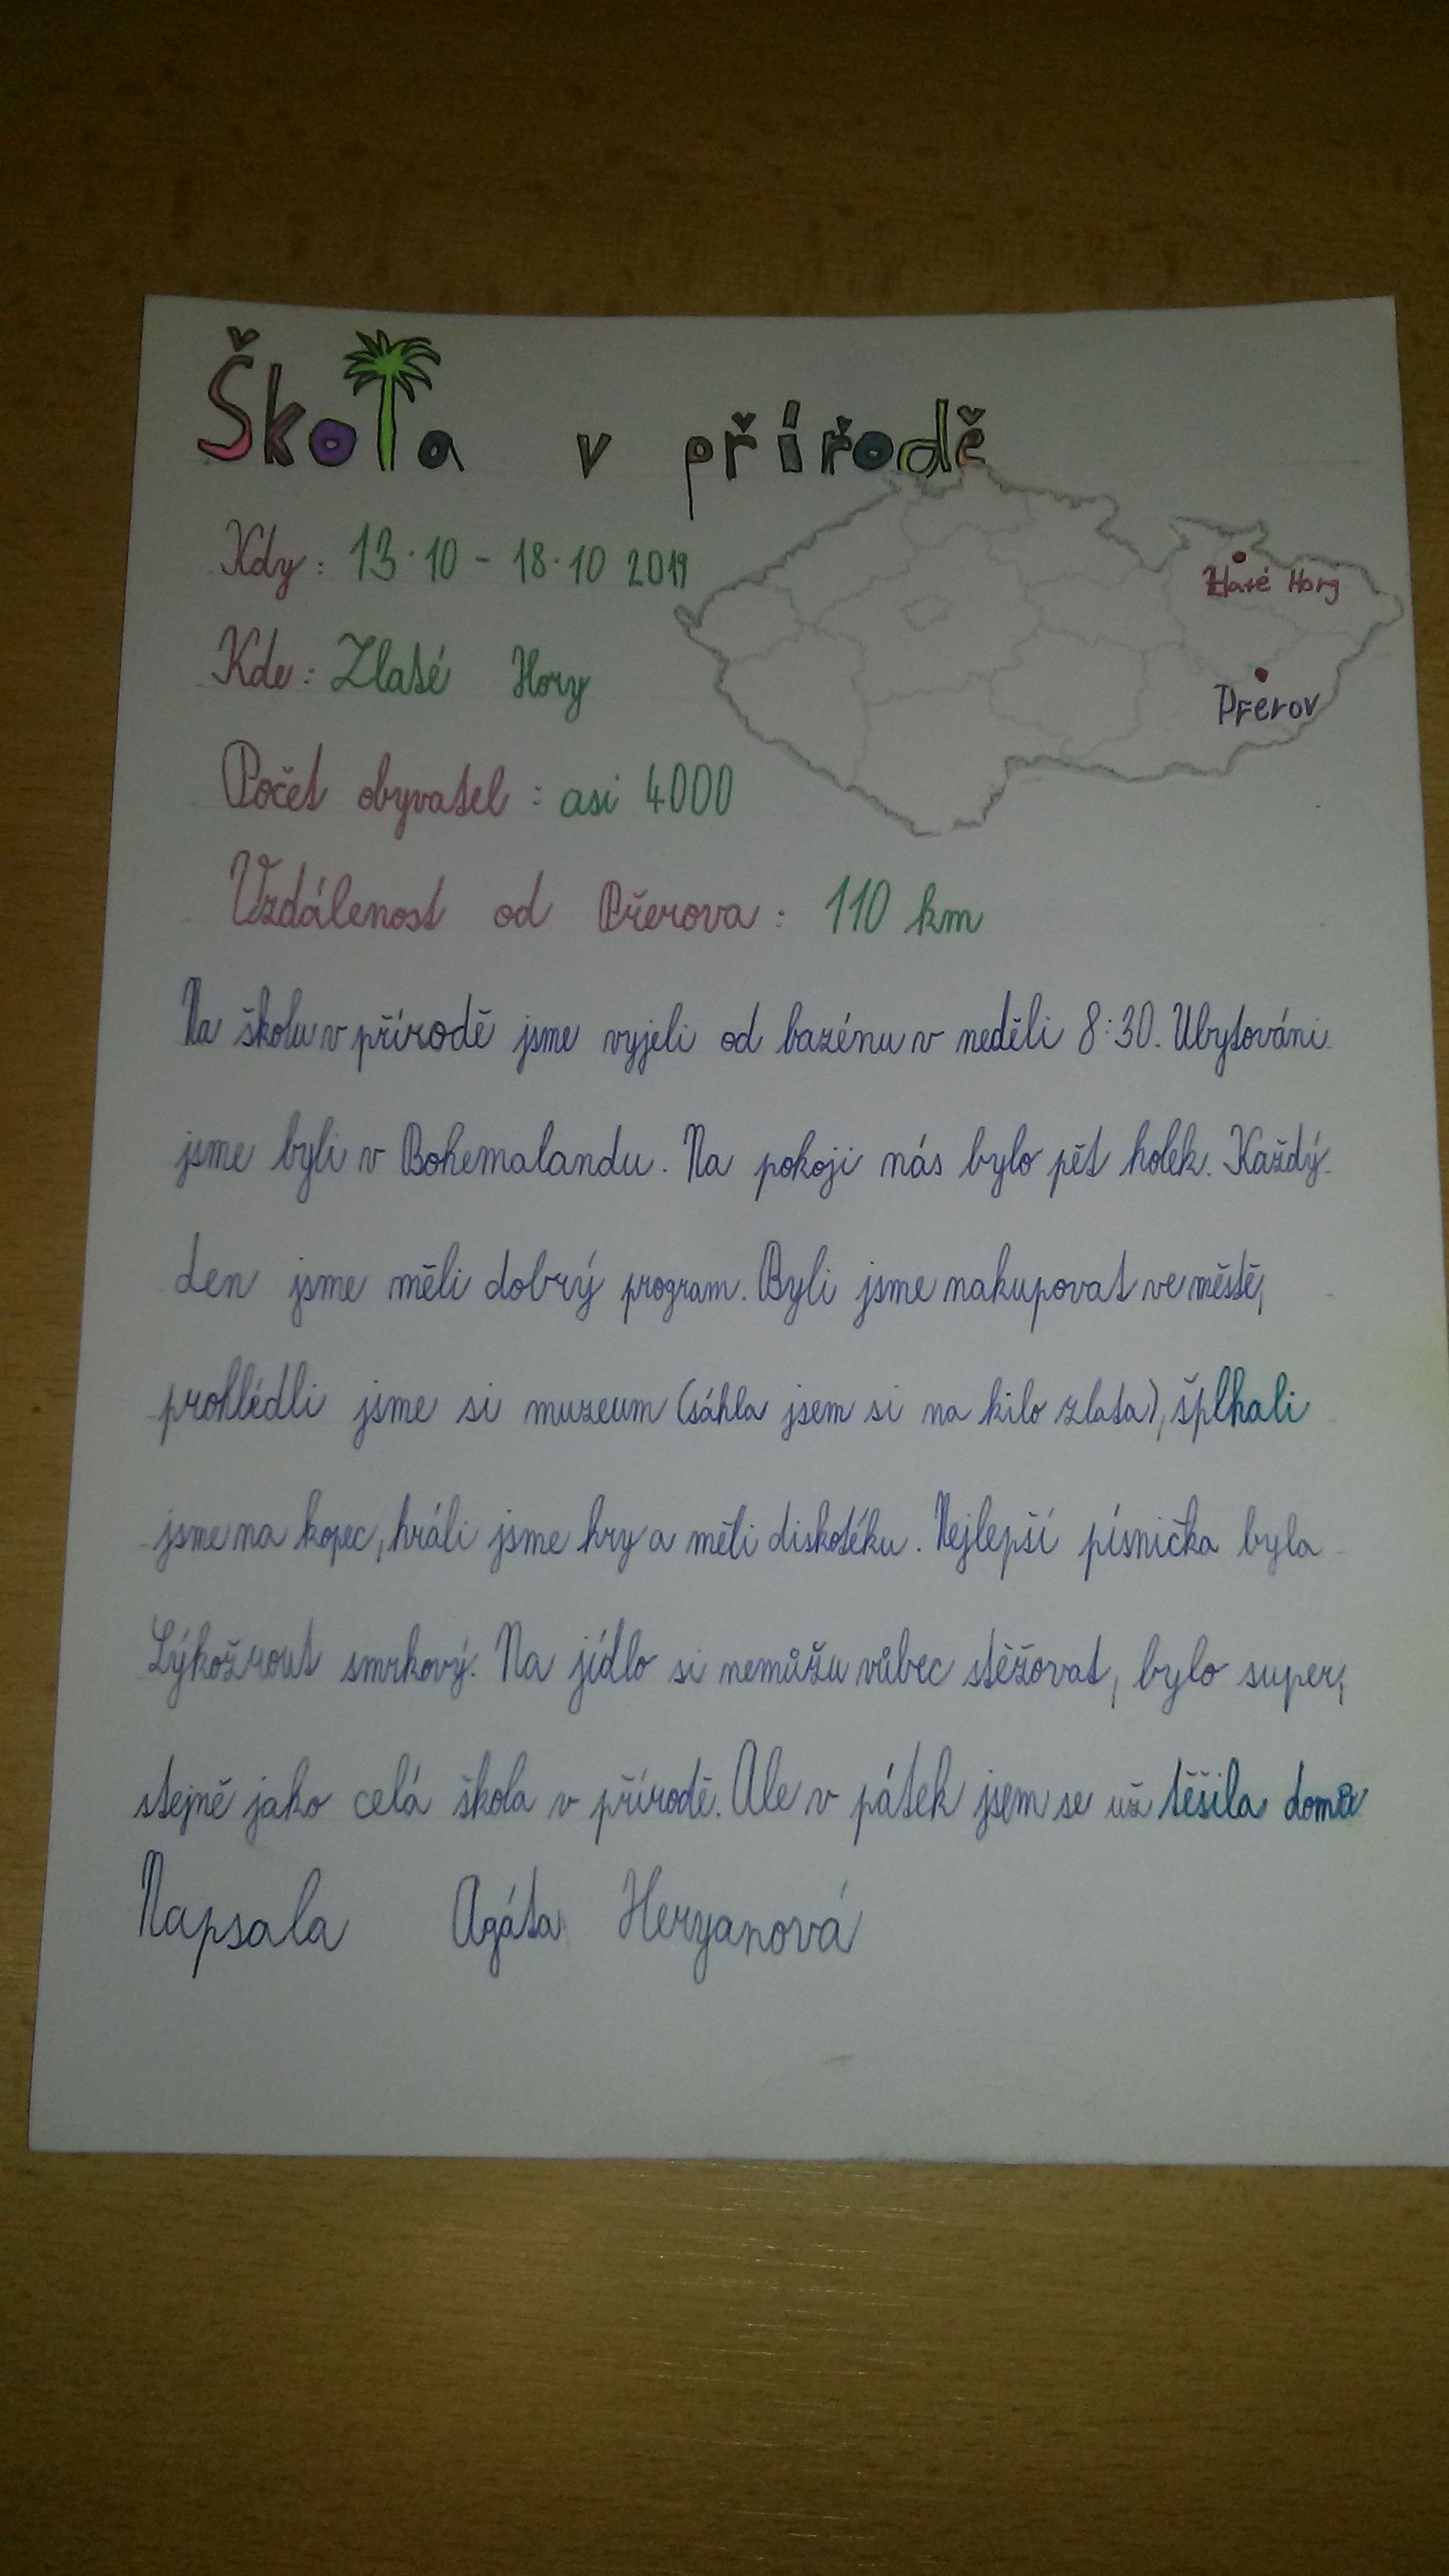 Škola v přírodě
Kdy: 13.10 - 18.10 2019
Zlaté Hory
Kde: Zlaté Hory
Přerov
Počet obyvatel: asi 4000
Vzdálenost od Přerova: 110 km
Na školu v přírodě jsme vyjeli od bazénu v neděli 8:30. Ubytováni
jsme byli v Bohemalandu. Na pokoji nás bylo pět holek. Každý
den jsme měli dobrý program. Byli jsme nakupovat ve městě,
prohlédli jsme si muzeum (sáhla jsem si na kilo zlata), šplhali
jsme na kopec, hráli jsme hry a měli diskotéku. Nejlepší písnička byla
Lýkožrout smrkový. Na jídlo si nemůžu vůbec stěžovat, bylo super,
stejně jako celá škola v přírodě. Ale v pátek jsem se už těšila domů
Napsala Agáta Heryanová